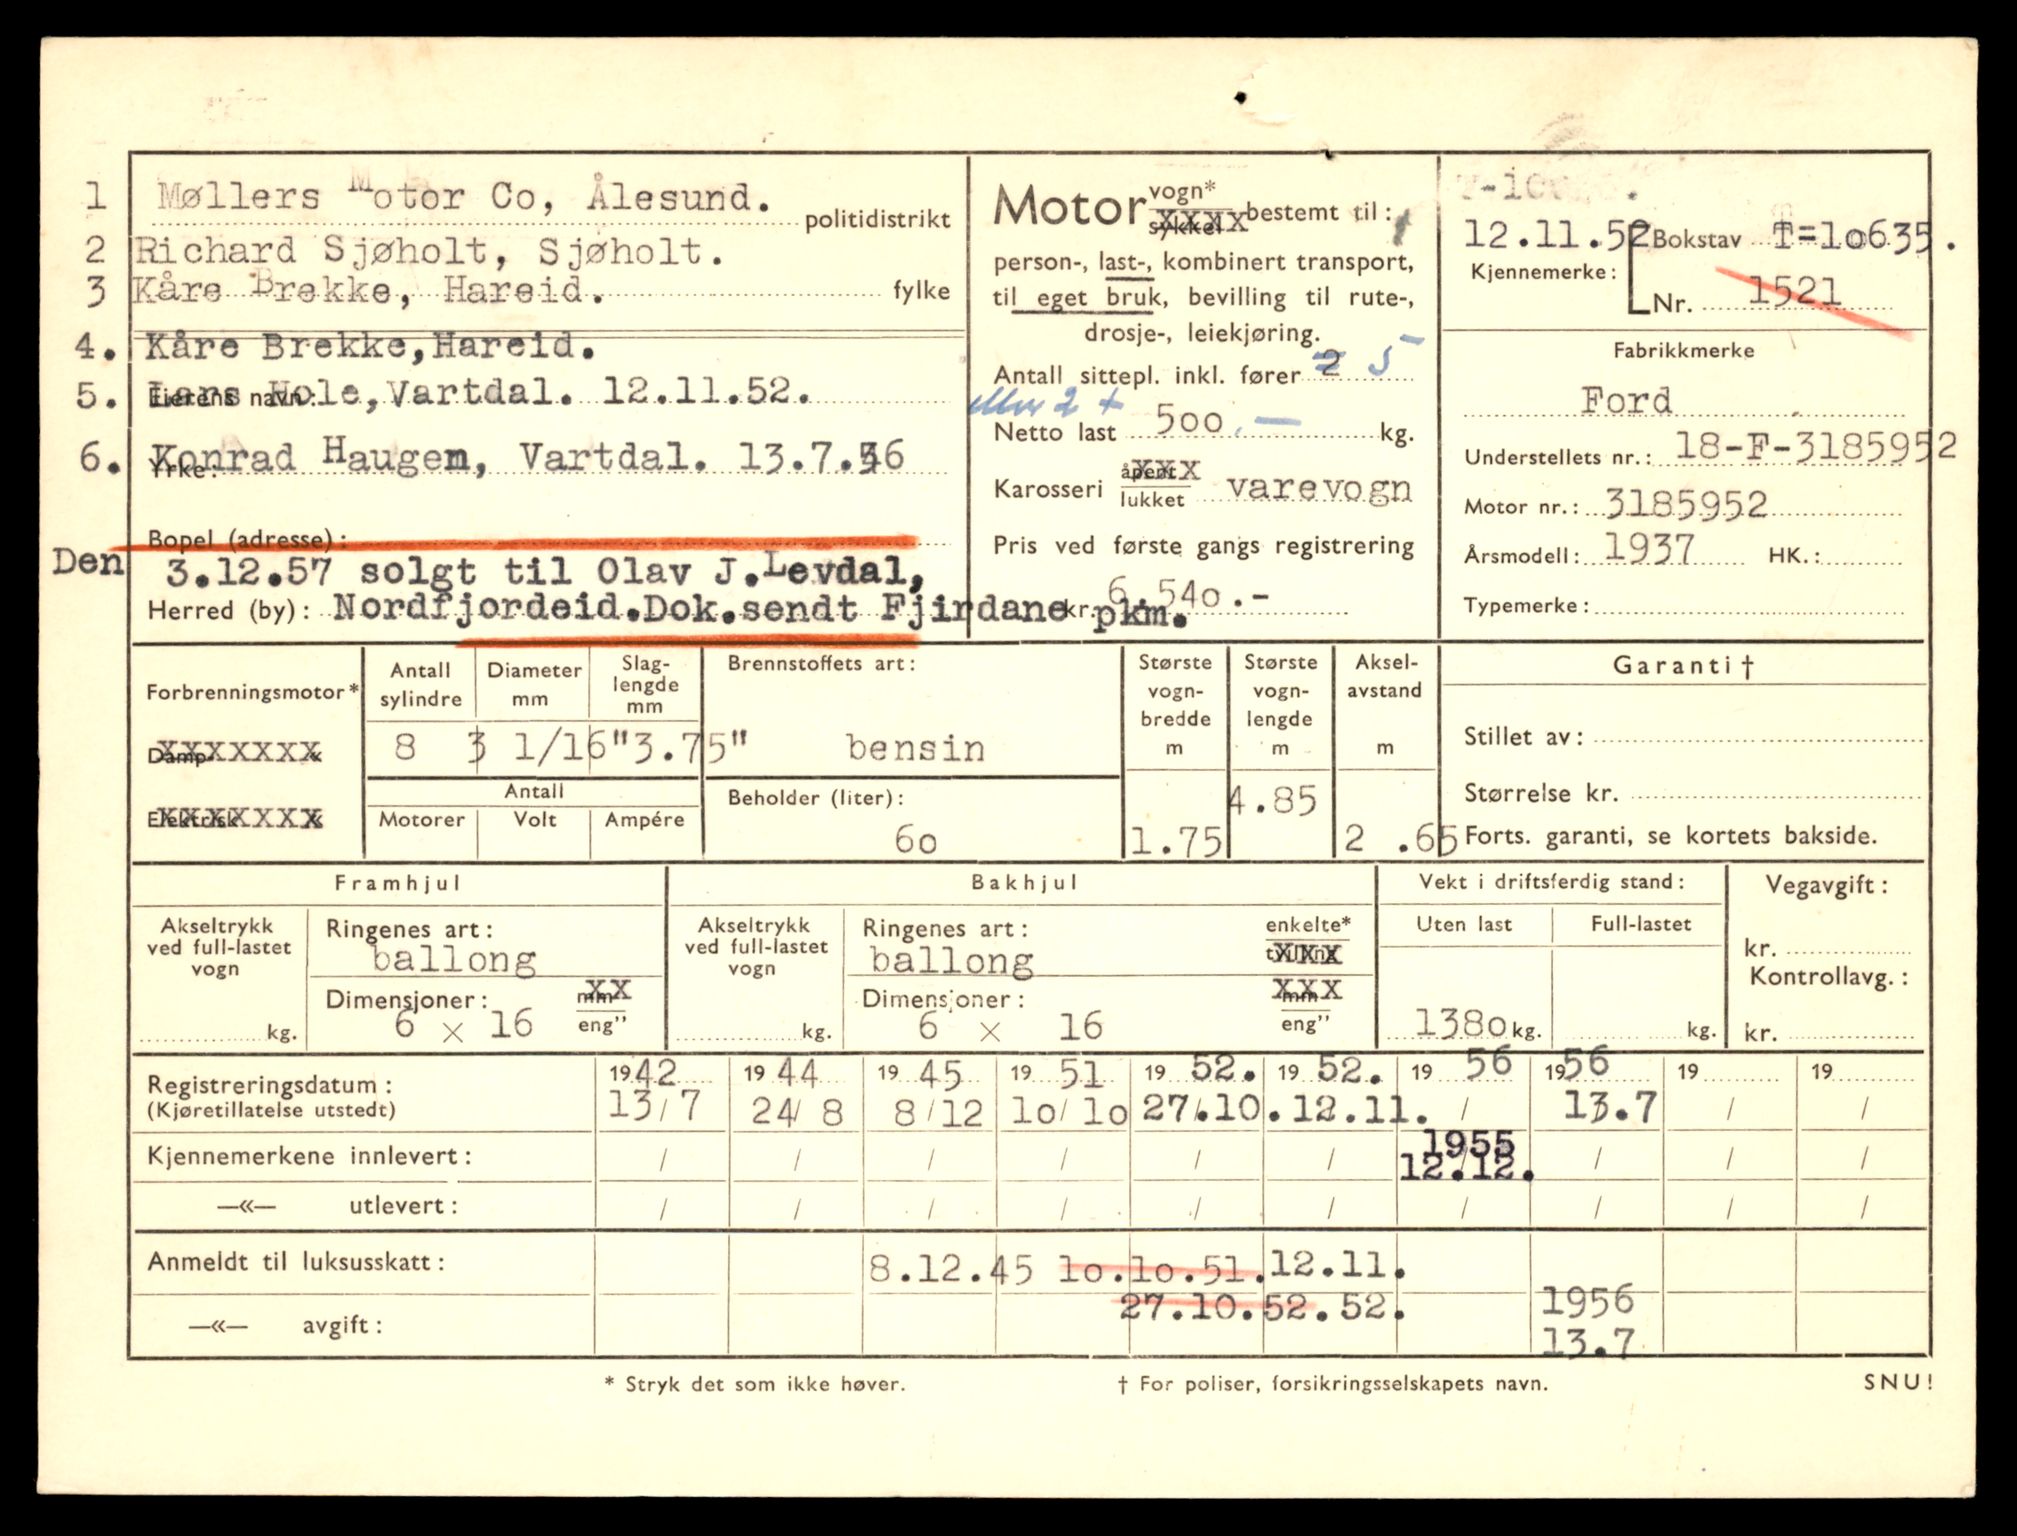 1 Møllers Motor Co, Ålesund. politidistrikt
2 Richard Sjøholt, Sjøholt.
3 Kåre Brekke, Hareid. fylke
4. Kåre Brekke, Hareid.
5. Lars Hole, Vartdal. 12.11.52.
Eierens navn:
6. Konrad Haugen, Vartdal. 13.7.56
Yrke:
Bopel (adresse):
Den 3.12.57 solgt til Olav J. Levdal,
Herred (by): Nordfjordeid. Dok. sendt Fjirdane pkm.
Motor vogn* sykkel bestemt til:
person-, last-, kombinert transport,
til eget bruk, bevilling til rute-,
drosje-, leiekjøring.
Antall sittepl. inkl. fører 2 5
eller 2 +
Netto last 500.- kg.
Karosseri åpent lukket varevogn
Pris ved første gangs registrering
kr. 6.540.-
12.11.52 Bokstav T=10635.
Kjennemerke:
Nr. 1521
Fabrikkmerke
Ford
Understellets nr.: 18-F-3185952
Motor nr.: 3185952
Årsmodell: 1937 HK.:
Typemerke:
Forbrenningsmotor*
Damp- «
Elektrisk «
Antall sylindre
Diameter mm
Slag-lengde mm
8 3 1/16" 3.75"
Antall
Motorer Volt Ampére
Brennstoffets art:
bensin
Beholder (liter):
60
Største vogn-bredde m
1.75
Største vogn-lengde m
4.85
Aksel-avstand m
2.65
Garanti †
Stillet av:
Størrelse kr.
Forts. garanti, se kortets bakside.
Framhjul
Akseltrykk ved full-lastet vogn
kg.
Ringenes art:
ballong
Dimensjoner: mm eng"
6 × 16
Bakhjul
Akseltrykk ved full-lastet vogn
kg.
Ringenes art: enkelte* tvilling
ballong
Dimensjoner: mm eng"
6 × 16
Vekt i driftsferdig stand:
Uten last Full-lastet
1380 kg. kg.
Vegavgift:
kr.
Kontrollavg.:
kr.
Registreringsdatum: 1942 1944 1945 1951 1952. 1952. 1956 1956 19 19
(Kjøretillatelse utstedt) 13/7 24/8 8/12 10/10 27.10. 12.11. / 13.7 / /
Kjennemerkene innlevert: / / / / / / 1955 12.12. / / /
—«— utlevert: / / / / / / / / / /
Anmeldt til luksusskatt: 8.12.45 10.10.51. 12.11.
27.10.52. 52. 1956
—«— avgift: 13.7
* Stryk det som ikke høver. † For poliser, forsikringsselskapets navn. SNU!